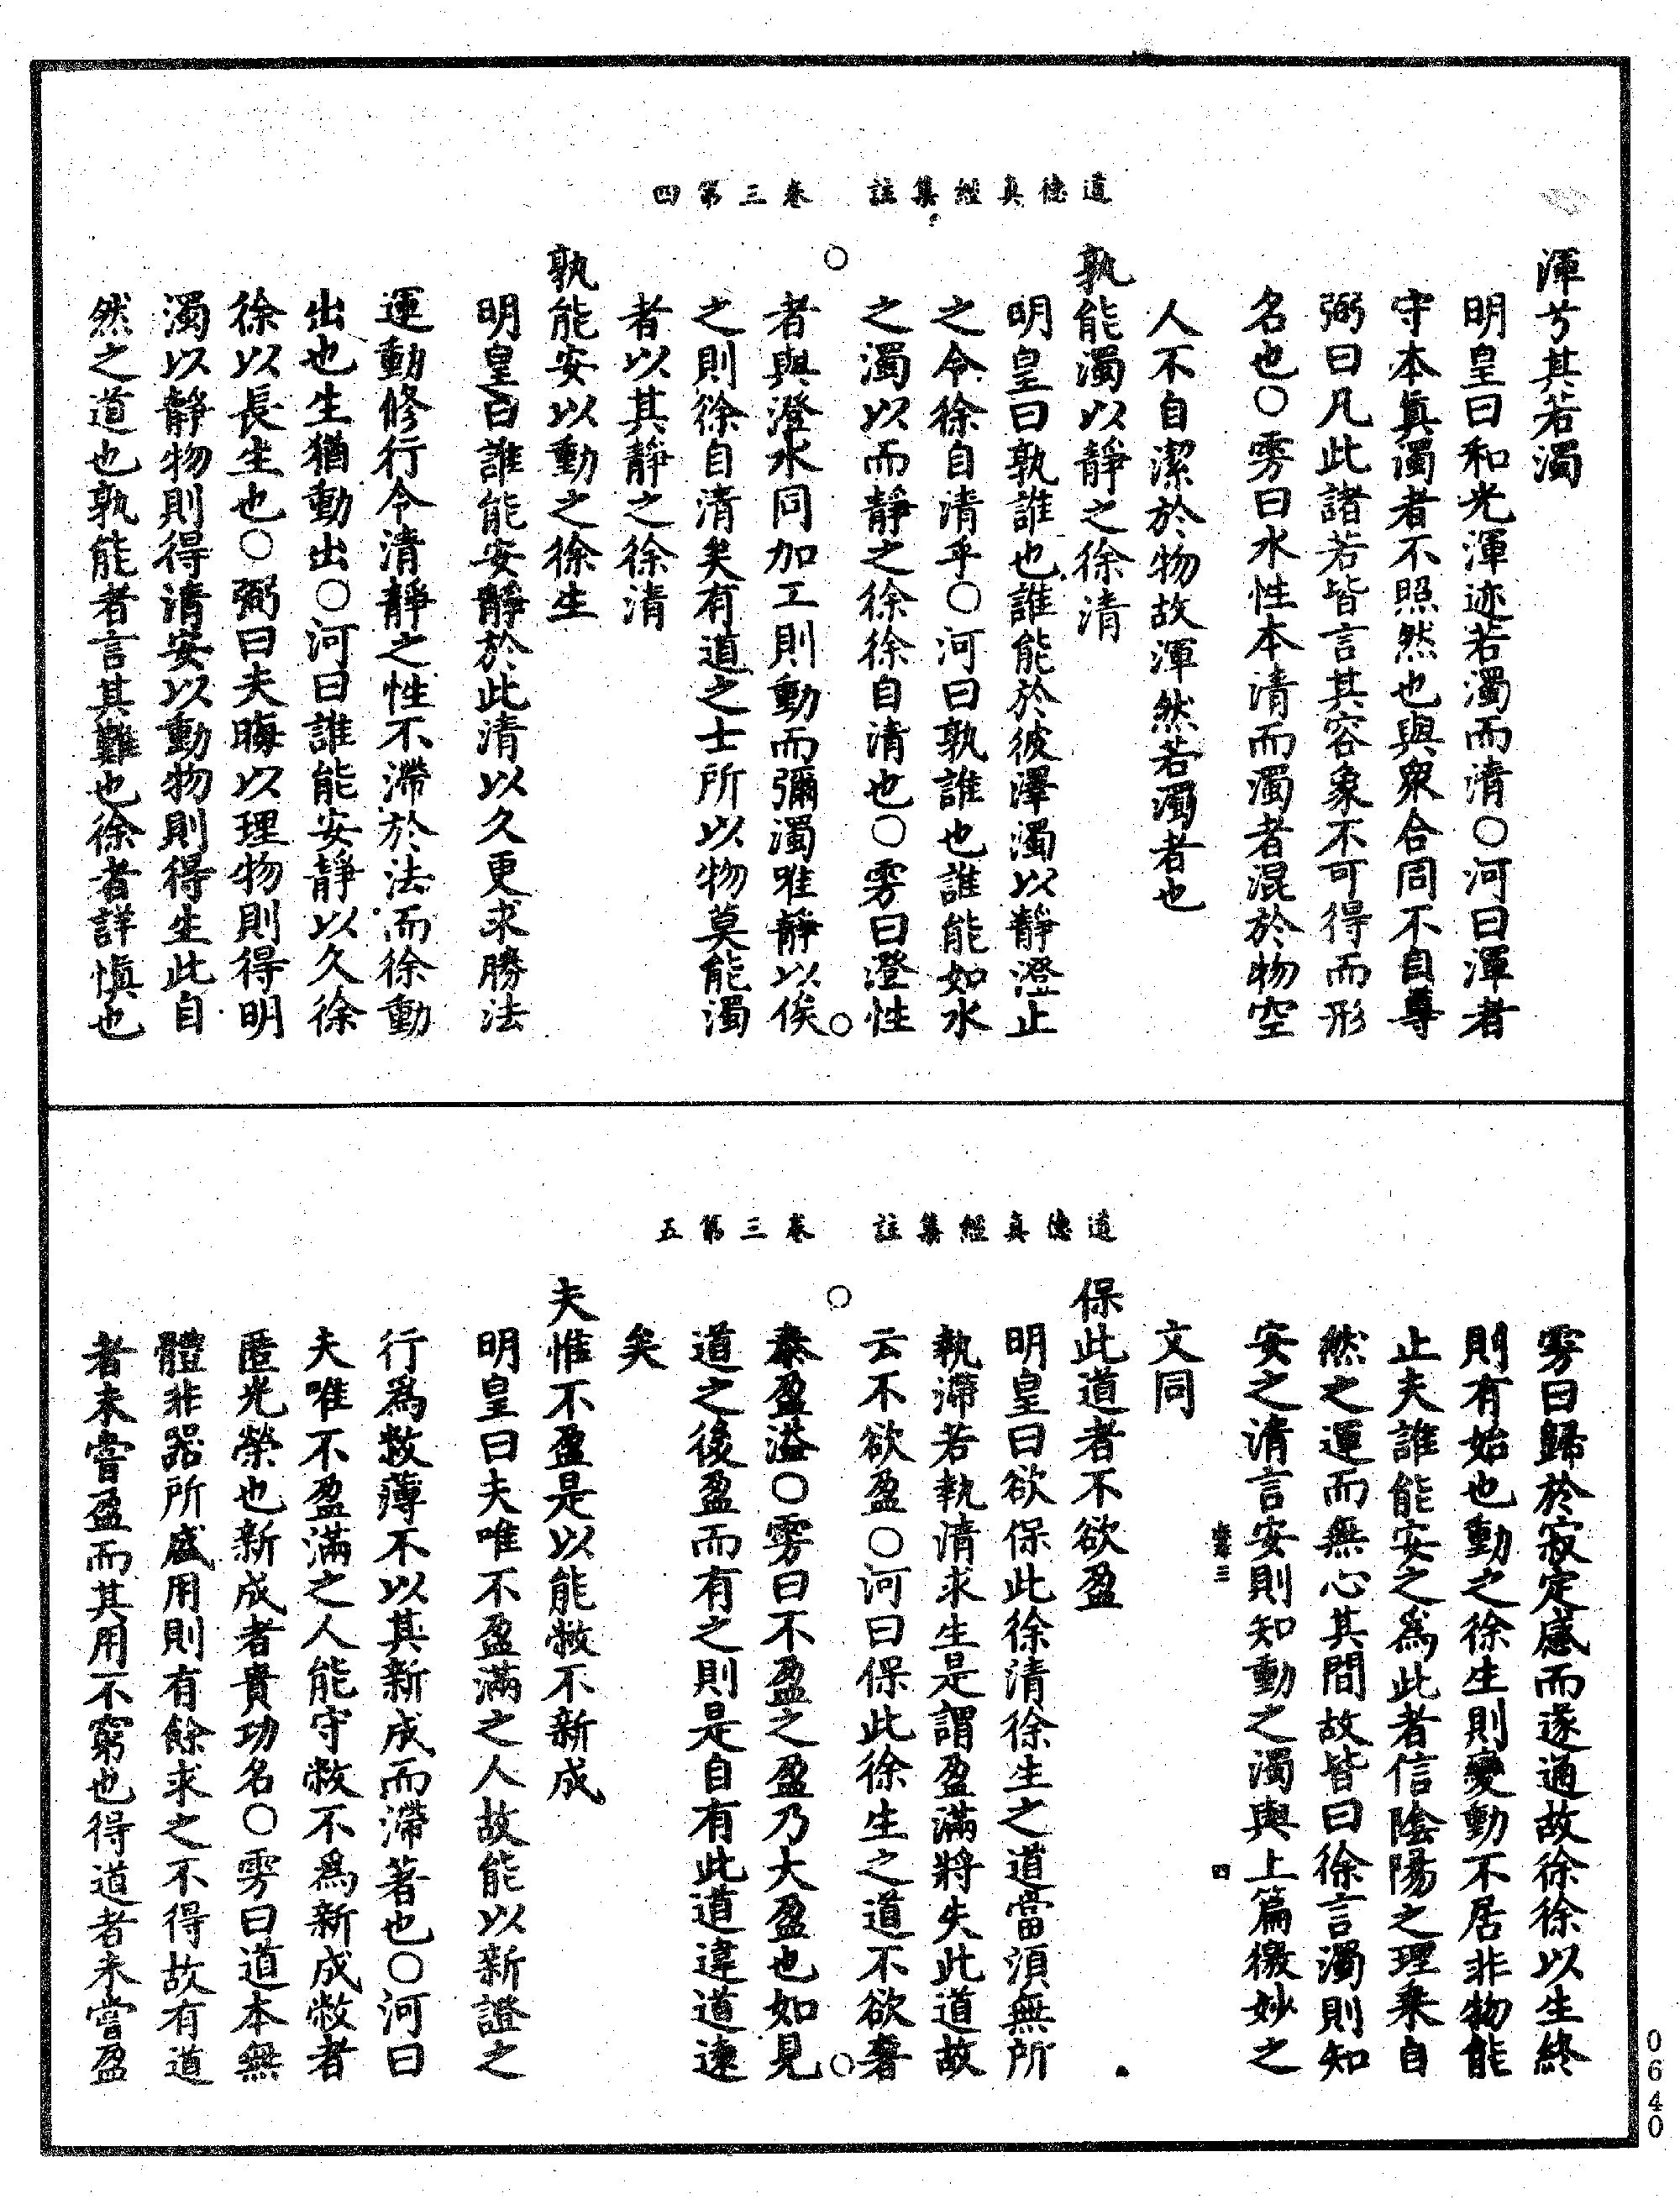 道德真經集註　卷三第四
渾兮其若濁
明皇曰和光渾迹若濁而清○河曰渾者
守本真濁者不照然也與衆合同不自尊
弼曰凡此諸若皆言其容象不可得而形
名也○雱曰水性本清而濁者混於物空
人不自潔於物故渾然若濁者也
孰能濁以靜之徐清
明皇曰孰誰也誰能於彼澤濁以靜澄止
之令徐自清乎○河曰孰誰也誰能如水
之濁以而靜之徐徐自清也○雱曰澄性
者與澄水同加工則動而彌濁唯靜以俟
之則徐自清矣有道之士所以物莫能濁
者以其靜之徐清
孰能安以動之徐生
明皇曰誰能安靜於此清以久更求勝法
運動修行令清靜之性不滯於法而徐動
出也生猶動出○河曰誰能安靜以久徐
徐以長生也○弼曰夫晦以理物則得明
濁以靜物則得清安以動物則得生此自
然之道也孰能者言其難也徐者詳慎也
道德真經集註　卷三第五
雱曰歸於寂定感而遂通故徐徐以生終
則有始也動之徐生則變動不居非物能
止夫誰能安之為此者信陰陽之理乘自
然之運而無心其間故皆曰徐言濁則知
安之清言安則知動之濁與上篇徼妙之
文同
保此道者不欲盈
明皇曰欲保此徐清徐生之道當須無所
執滯若執清求生是謂盈滿將失此道故
云不欲盈○河曰保此徐生之道不欲奢
泰盈溢○雱曰不盈之盈乃大盈也如見
道之後盈而有之則是自有此道違道遠
矣
夫惟不盈是以能敝不新成
明皇曰夫唯不盈滿之人故能以新證之
行為敝薄不以其新成而滯著也○河曰
夫唯不盈滿之人能守敝不為新成敝者
匿光榮也新成者貴功名○雱曰道本無
體非器所盛用則有餘求之不得故有道
者未嘗盈而其用不窮也得道者未嘗盈
0640